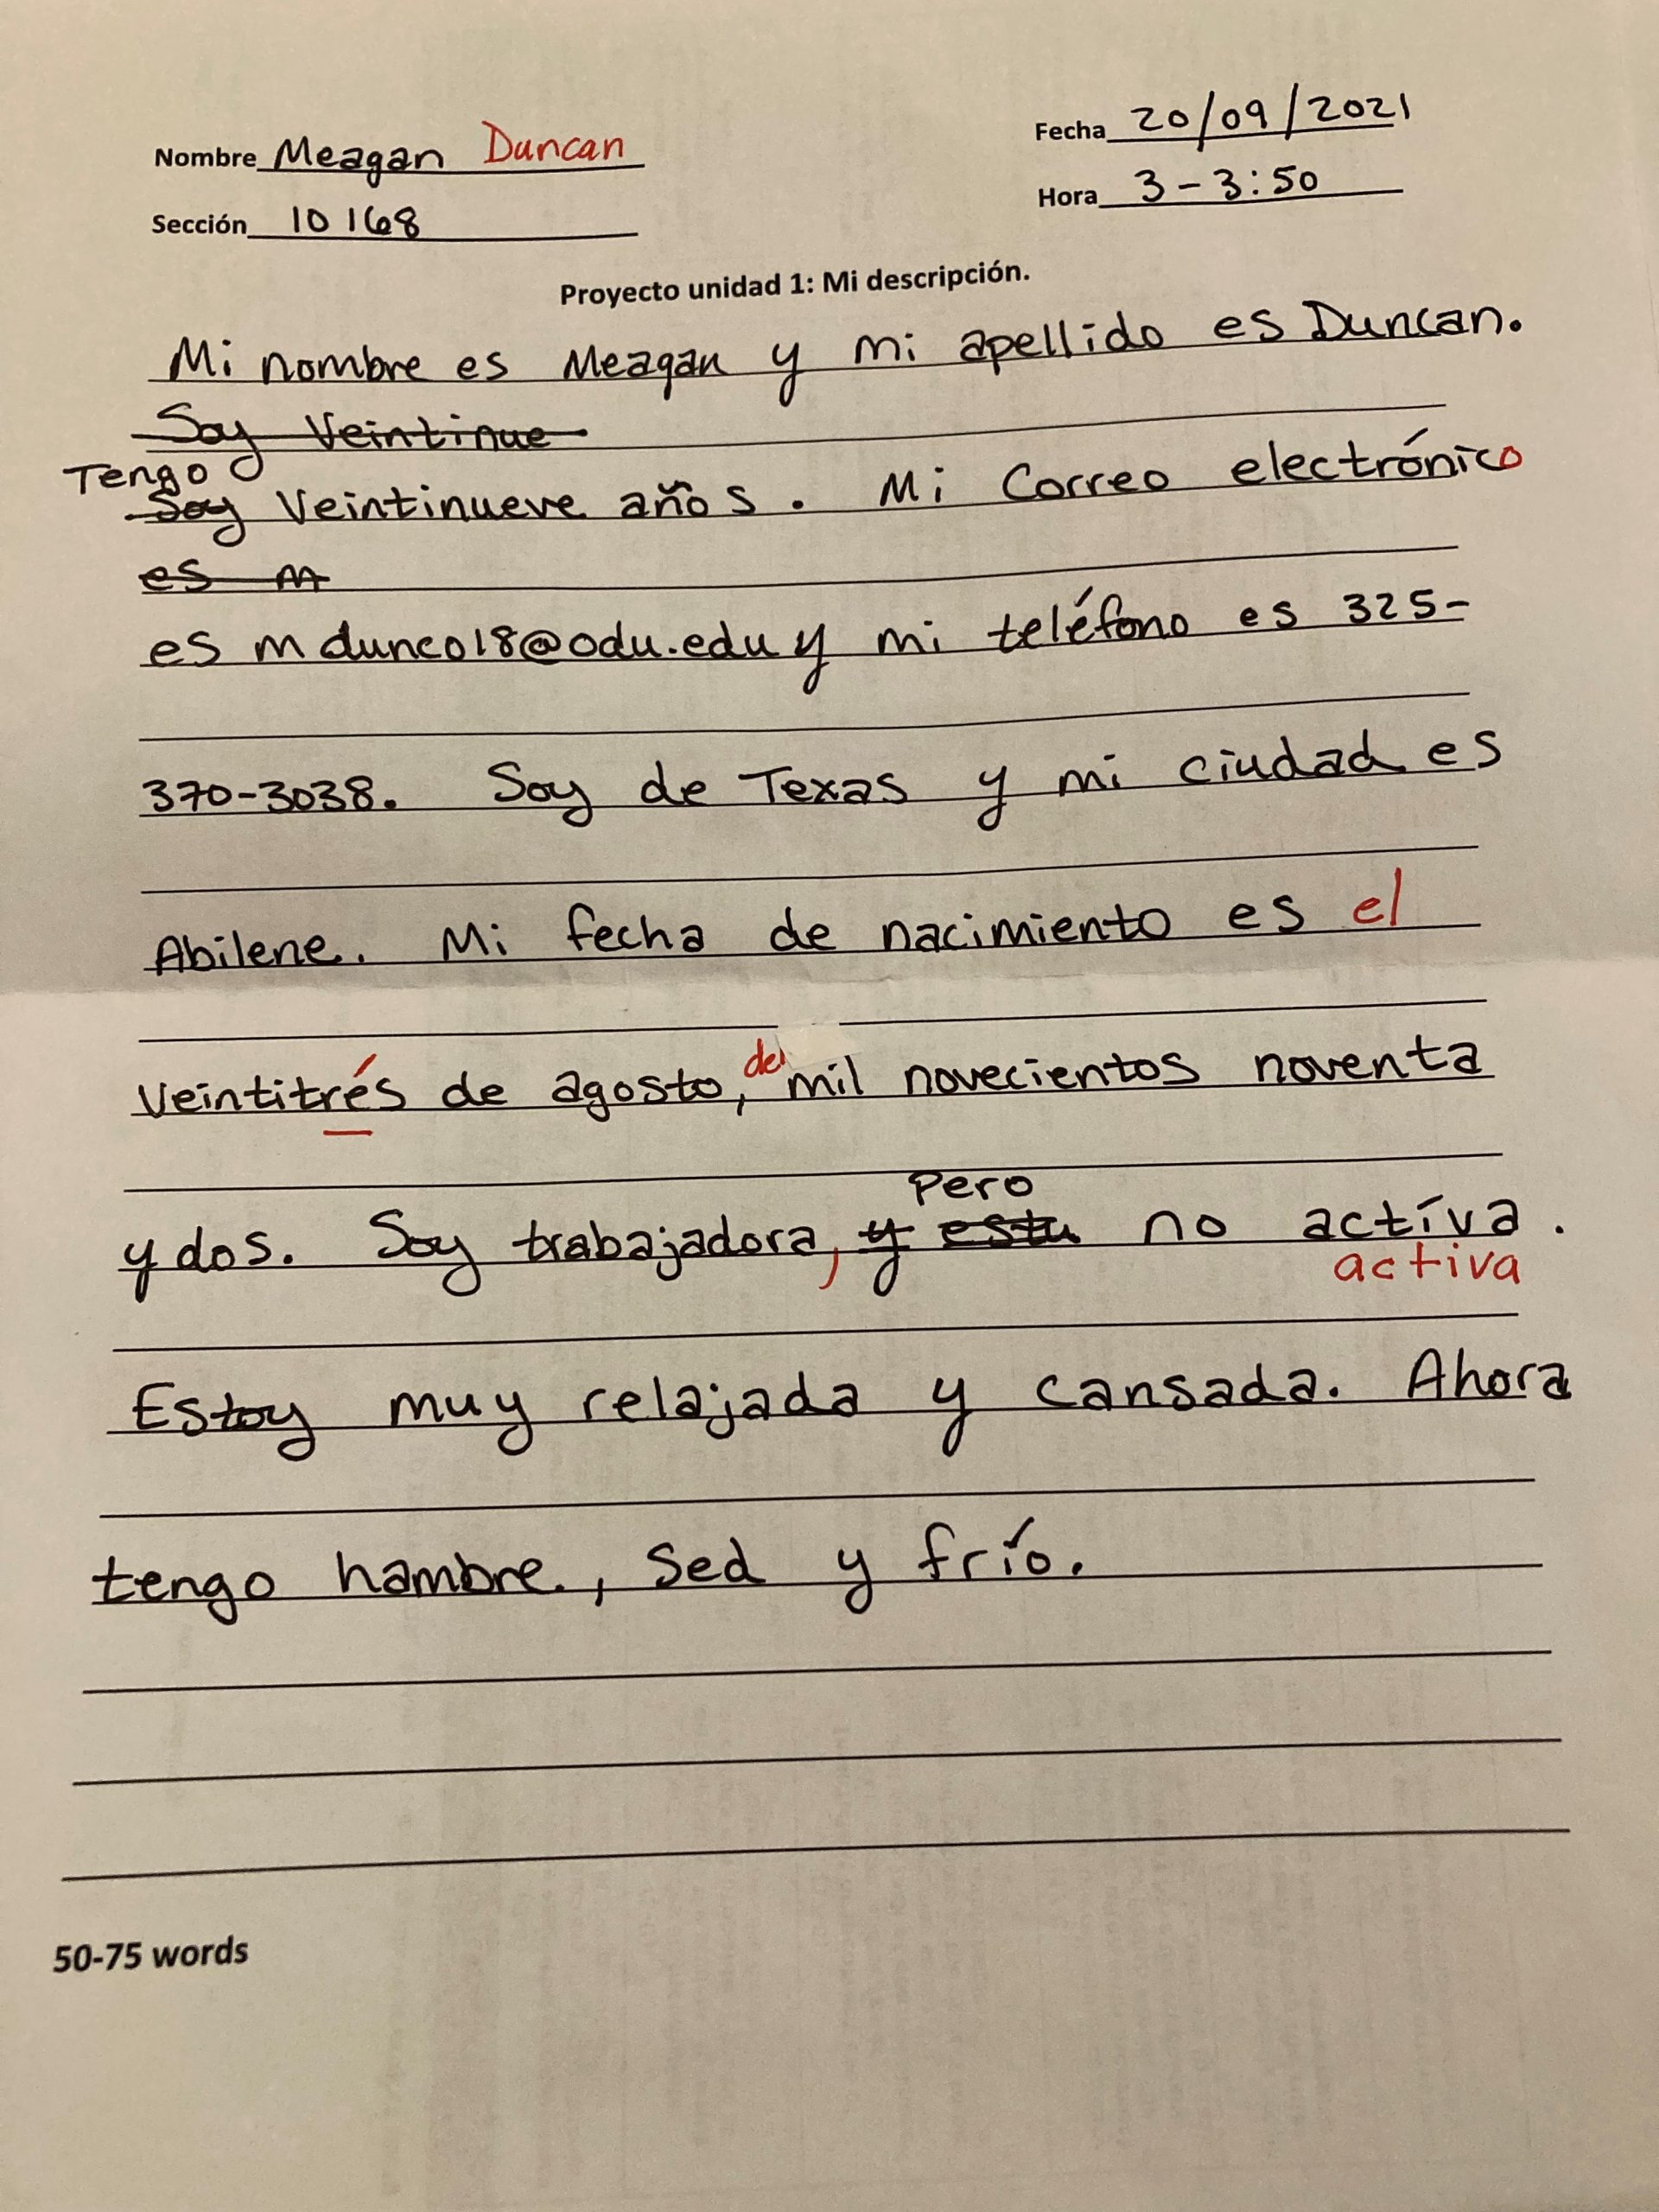 Nombre Meagan Duncan
Fecha 20/09/2021
Sección 10168
Hora 3-3:50
Proyecto unidad 1: Mi descripción.
Mi nombre es Meagan y mi apellido es Duncan.
Soy Veintinue
Tengo
Soy Veintinueve años. Mi Correo electrónico
es m
es mdunco18@odu.edu y mi teléfono es 325-
370-3038. Soy de Texas y mi ciudad es
Abilene. Mi fecha de nacimiento es el
veintitrés de agosto, del mil novecientos noventa
y dos. Soy trabajadora, y estu Pero no actíva.
activa
Estoy muy relajada y cansada. Ahora
tengo hambre, sed y frío.
50-75 words